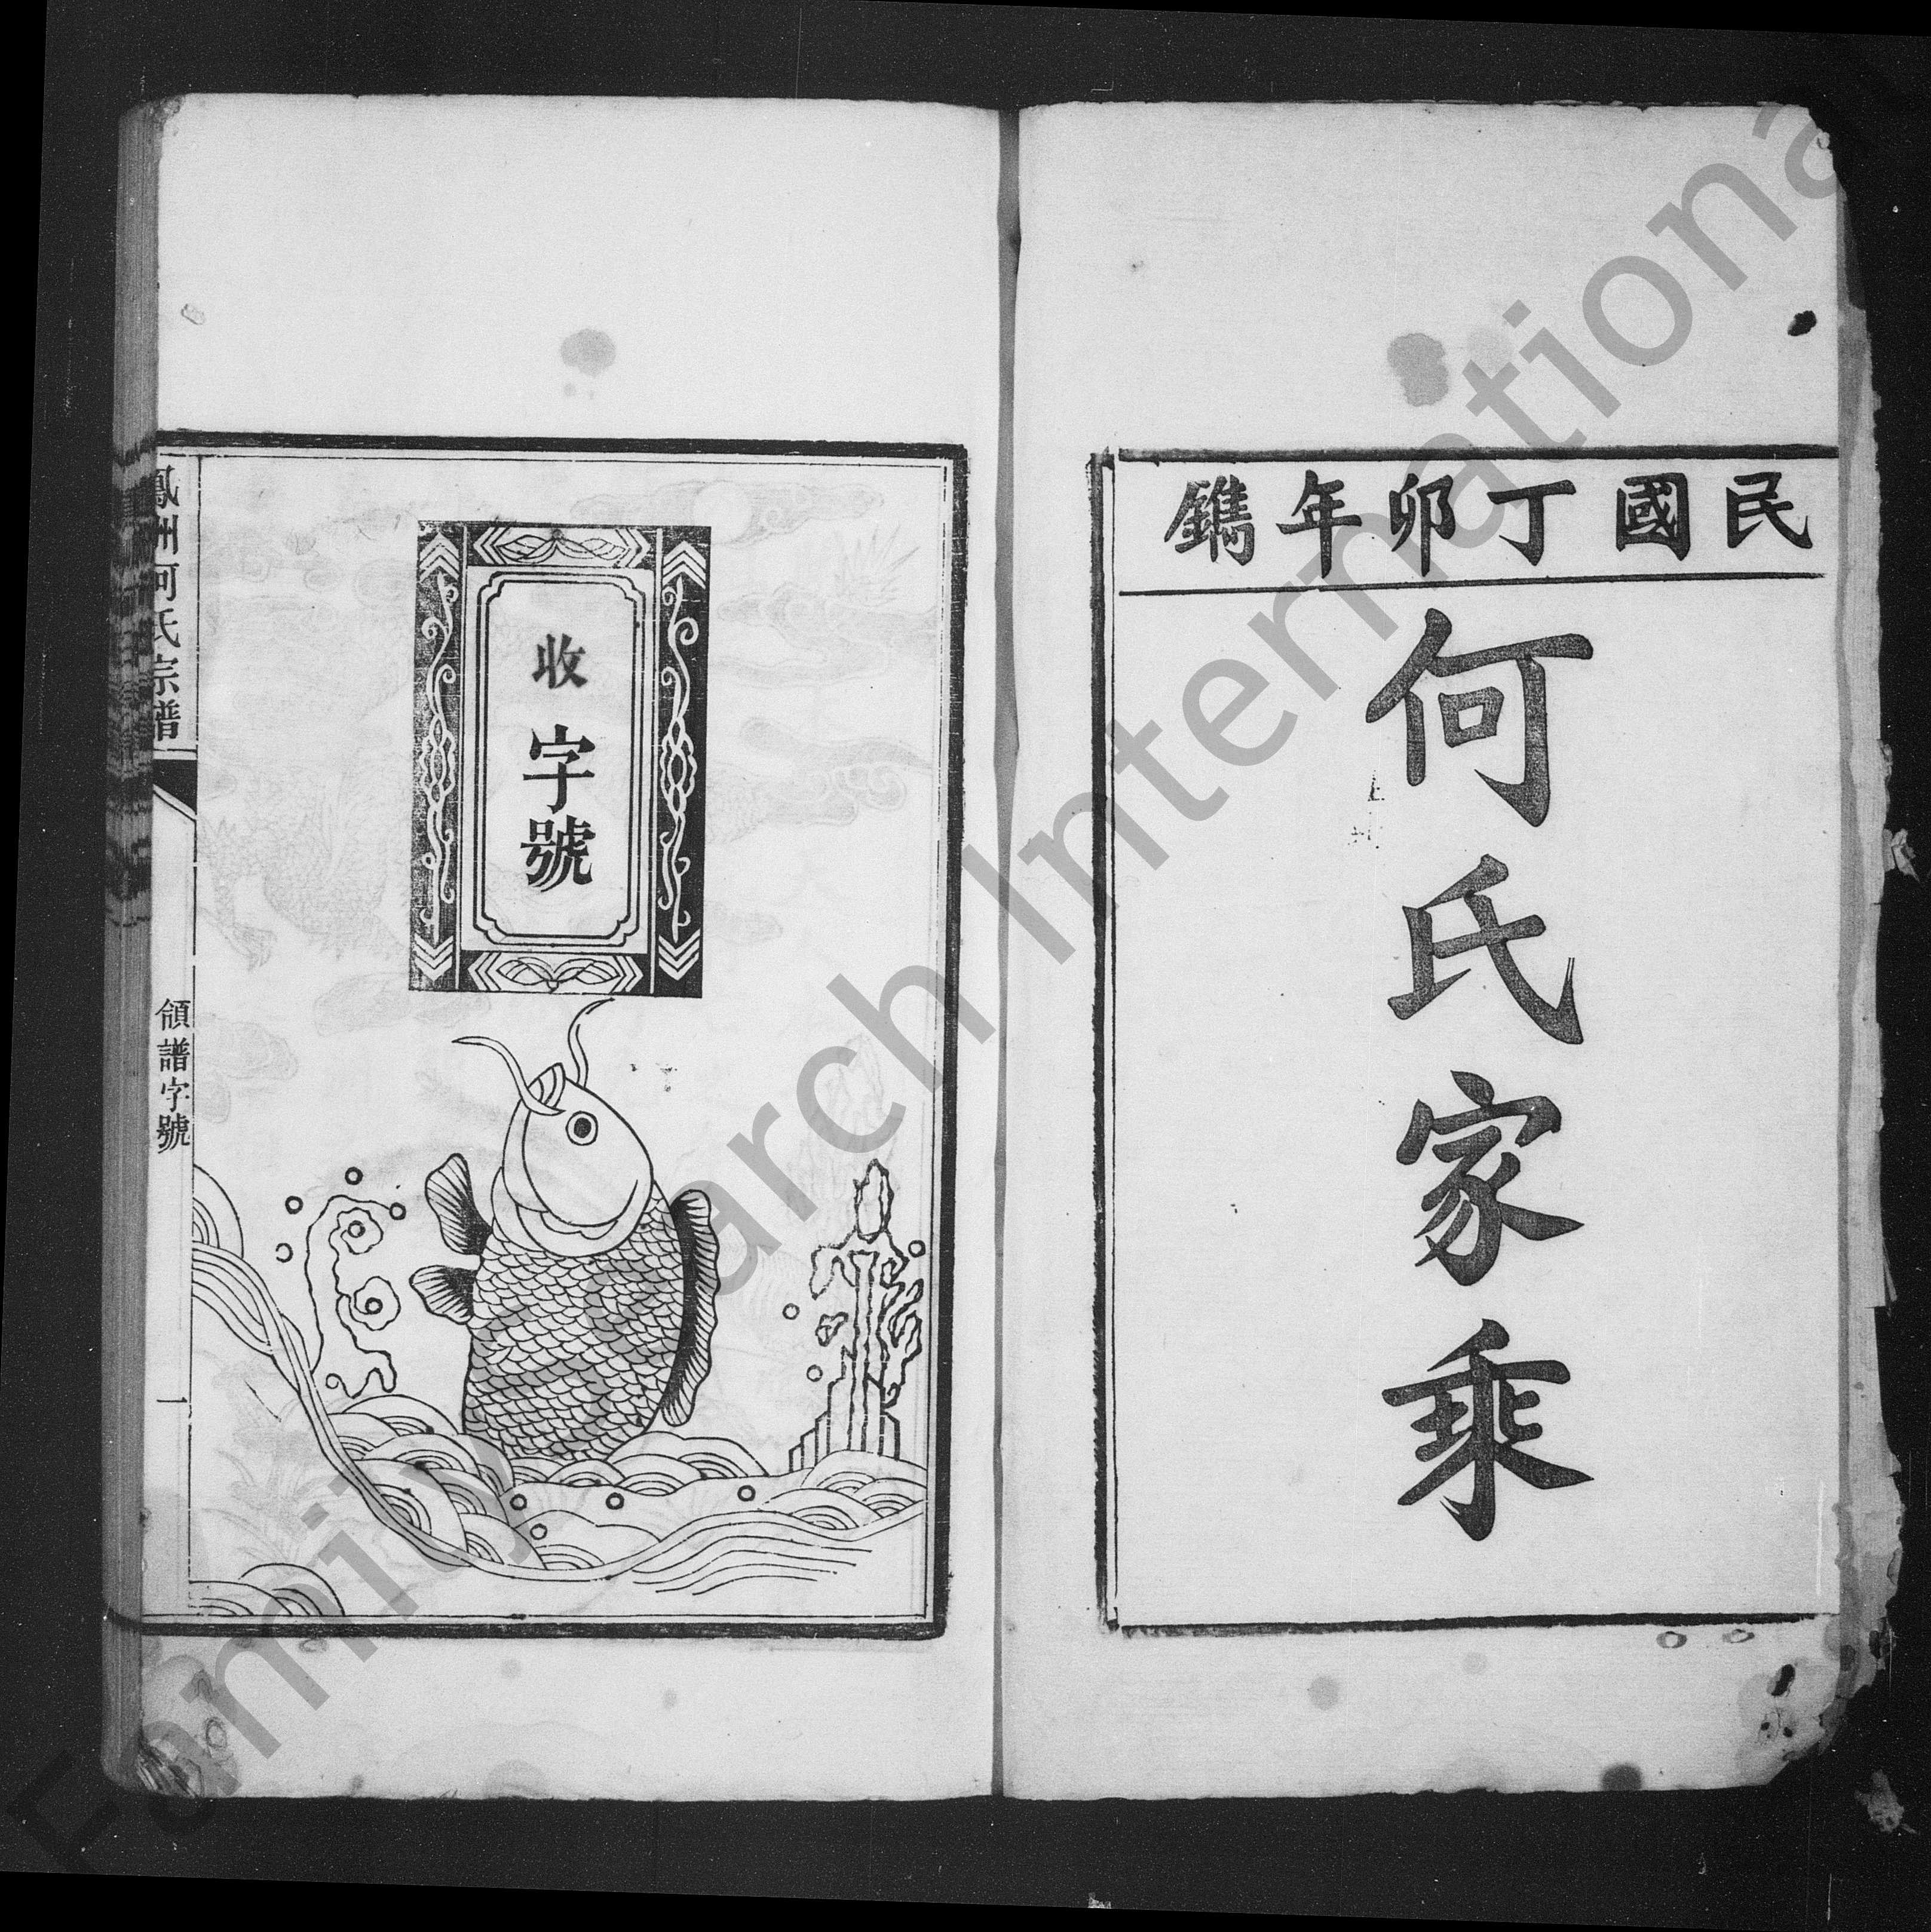 民國丁卯年鐫
何氏家乘
收字號
鳳洲何氏宗譜
領譜字號
一
Family Search International